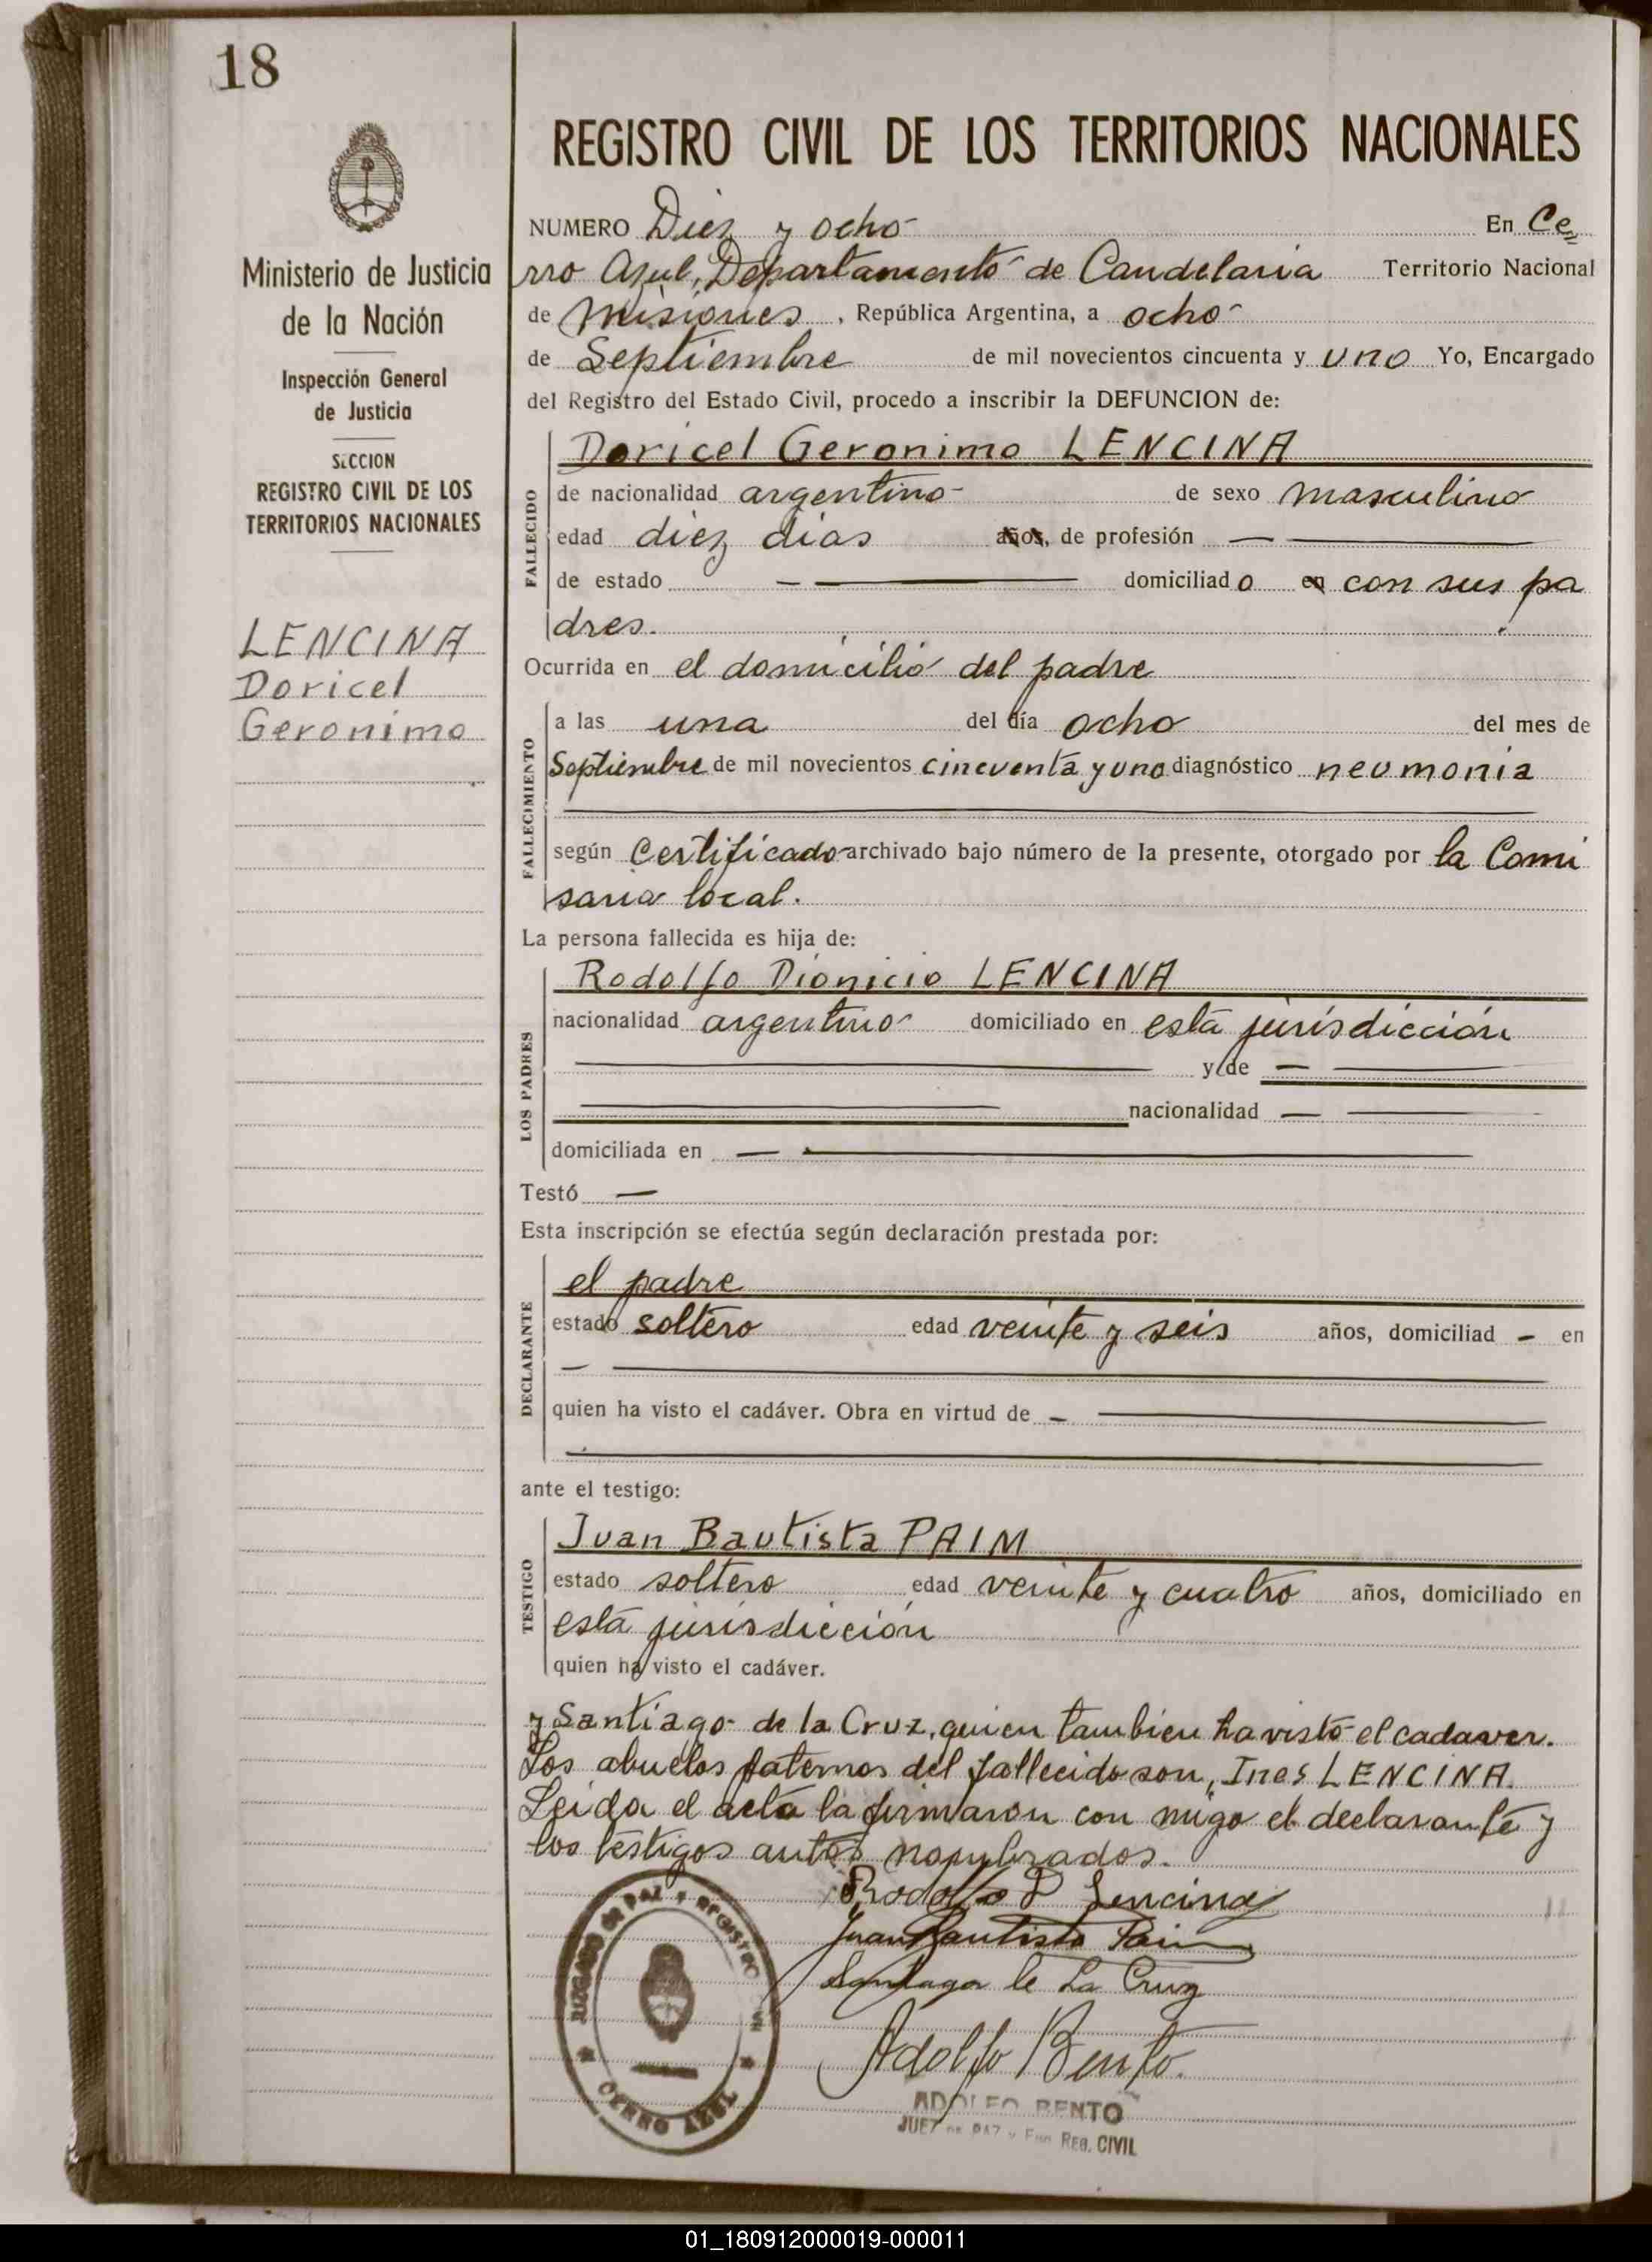 18
Ministerio de Justicia
de la Nación
Inspección General
de Justicia
SECCION
REGISTRO CIVIL DE LOS
TERRITORIOS NACIONALES
LENCINA
Doricel
Geronimo
REGISTRO CIVIL DE LOS TERRITORIOS NACIONALES
NUMERO Diez y ocho En Ce
rro Azul, Departamento de Candelaria Territorio Nacional
de Misiones, República Argentina, a ocho
de Septiembre de mil novecientos cincuenta y uno Yo, Encargado
del Registro del Estado Civil, procedo a inscribir la DEFUNCION de:
FALLECIDO
Doricel Geronimo LENCINA
de nacionalidad argentino de sexo masculino
edad diez dias años, de profesión —
de estado — domiciliado en con sus pa
dres.
Ocurrida en el domicilio del padre
FALLECIMIENTO
a las una del día ocho del mes de
Septiembre de mil novecientos cincuenta y uno diagnóstico neumonia
según Certificado archivado bajo número de la presente, otorgado por la Comi
saria local.
La persona fallecida es hija de:
LOS PADRES
Rodolfo Dionicio LENCINA
nacionalidad argentino domiciliado en esta jurisdicción
y de —
nacionalidad —
domiciliada en —
Testó —
Esta inscripción se efectúa según declaración prestada por:
DECLARANTE
el padre
estado soltero edad veinte y seis años, domiciliad - en
—
quien ha visto el cadáver. Obra en virtud de —
ante el testigo:
TESTIGO
Juan Bautista PAIM
estado soltero edad veinte y cuatro años, domiciliado en
esta jurisdicción
quien ha visto el cadáver.
y Santiago de la Cruz, quien tambien ha visto el cadaver.
Los abuelos paternos del fallecido son, Ines LENCINA.
Leida el acta la firmaron con migo el declarante y
los testigos antes nombrados.
Rodolfo D Lencina
Juan Bautista Paim
Santiago de La Cruz
Adolfo Bento.
JUZGADO DE PAZ Y REGISTRO CIVIL
CERRO AZUL
ADOLFO BENTO
JUEZ DE PAZ y Enc. REG. CIVIL
01_180912000019-000011